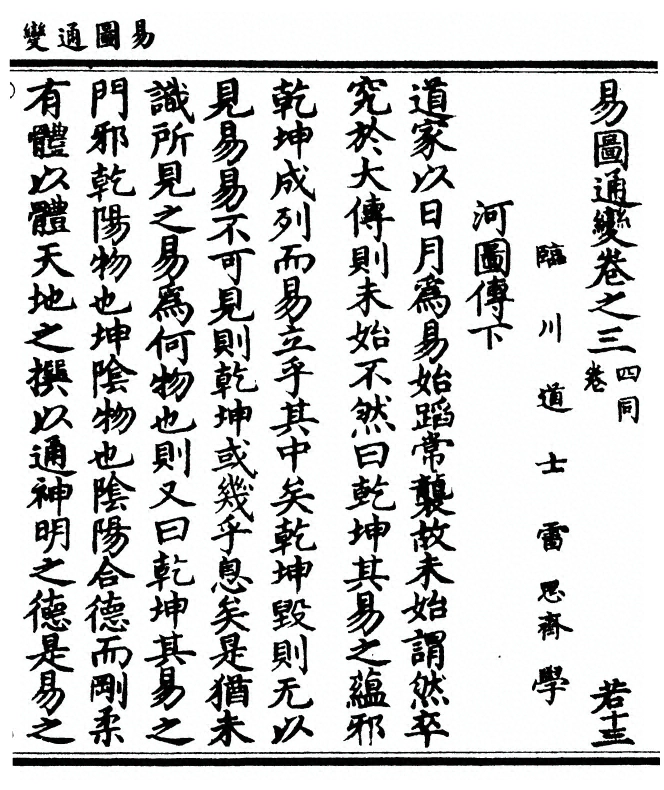 易圖通變
易圖通變卷之三 四同卷 若十三
臨川道士雷思齊學
河圖傳下
道家以日月為易始蹈常襲故未始謂然卒
究於大傳則未始不然曰乾坤其易之蘊邪
乾坤成列而易立乎其中矣乾坤毀則无以
見易易不可見則乾坤或幾乎息矣是猶未
識所見之易為何物也則又曰乾坤其易之
門邪乾陽物也坤陰物也陰陽合德而剛柔
有體以體天地之撰以通神明之德是易之